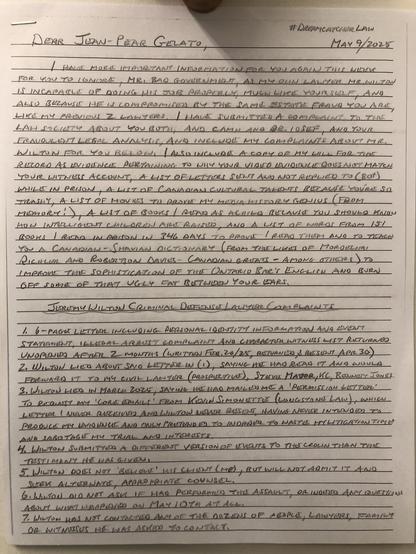 #DREAMCATCHER LAW
DEAR JUAN-PEAR GELATO, MAY 9/2025
I HAVE MORE IMPORTANT INFORMATION FOR YOU AGAIN THIS WEEK
FOR YOU TO IGNORE, MR. BAD GOVERNMENT, AS MY OWN LAWYER MR. WILTON
IS INCAPABLE OF DOING HIS JOB PROPERLY, MUCH LIKE YOURSELF, AND
ALSO BECAUSE HE IS COMPROMISED BY THE SAME ESTATE FRAUD YOU ARE,
LIKE MY PREVIOUS 2 LAWYERS. I HAVE SUBMITTED A COMPLAINT TO THE
LAW SOCIETY ABOUT YOU BOTH, AND CAMM AND IOSEF, AND YOUR
FRAUDULENT LEGAL ANALYSIS, AND INCLUDE MY COMPLAINTS ABOUT MR.
WILTON FOR YOU BELOW. I ALSO INCLUDE A COPY OF MY WILL FOR THE
RECORD AS EVIDENCE PERTAINING TO WHY YOUR VIDEO EVIDENCE DOES NOT MATCH
YOUR WITNESS ACCOUNT, A LIST OF LETTERS SENT AND NOT REPLIED TO
WHILE IN PRISON, A LIST OF CANADIAN CULTURAL TALENTS BECAUSE YOU'RE SO
TRASHY, A LIST OF MOVIES TO PROVE MY MEDIA HISTORY GENIUS (FROM
MEMORY!), A LIST OF BOOKS I READ AS BECAUSE YOU SHOULD KNOW
HOW INTELLIGENT CHILDREN ARE RAISED, AND A LIST OF WORDS FROM 151
BOOKS I READ IN PRISON IN 346 DAYS TO PROVE I READ THEM AND TO TEACH
YOU A CANADIAN - SHAVIAN DICTIONARY (FROM THE LIKES OF MORDECAI
RICHLER AND ROBERTSON DAVIES - CANADIAN GREATS - AMONG OTHERS) TO
IMPROVE THE SOPHISTICATION OF THE ONTARIO BAR'S ENGLISH AND BURN
OFF SOME OF THAT UGLY FAT BETWEEN YOUR EARS.
JEREMY WILTON CRIMINAL DEFENSE LAWYER COMPLAINTS
1. 6-PAGE LETTER INCLUDING PERSONAL IDENTITY INFORMATION AND EVENT
STATEMENT, ILLEGAL ARREST COMPLAINT AND CHARACTER WITNESS LIST RETURNED
UNOPENED AFTER 2 MONTHS (WRITTEN FEB. 20/25, RETURNED & RESENT APR. 30)
2. WILTON LIED ABOUT SAID LETTER IN (1), SAYING HE HAD READ IT AND WOULD
FORWARD IT TO MY CIVIL LAWYER (PROSPECTIVE), STEVE KC,
3. WILTON LIED IN MARCH 2025, SAYING HE HAD MAILED ME A 'PERMISSION LETTER'
TO REQUEST MY 'CORE EMAILS' FROM KEVIN SIMONETTE (LIVINGSTONE LAW), WHICH
LETTER I NEVER RECEIVED AND WILTON NEVER RESENT, HAVING NEVER INTENDED TO
PRODUCE MY EVIDENCE AND ONLY PRETENDED TO IN ORDER TO WASTE MY LITIGATION TIME
AND SABOTAGE MY TRIAL AND INTERESTS.
4. WILTON SUBMITTED A DIFFERENT VERSION OF EVENTS TO THE CROWN THAN THE
TESTIMONY HE WAS GIVEN.
5. WILTON DOES NOT 'BELIEVE' HIS CLIENT (ME), BUT WILL NOT ADMIT IT AND
SEEK ALTERNATE, APPROPRIATE COUNSEL.
6. WILTON DID NOT ASK IF I HAD PERFORMED THE ASSAULT, OR INDEED ANY QUESTION
ABOUT WHAT HAPPENED ON MAY 10TH AT ALL.
7. WILTON HAS NOT CONTACTED ANY OF THE DOZENS OF PEOPLE, LAWYERS, FAMILY
OR WITNESSES HE WAS ASKED TO CONTACT.